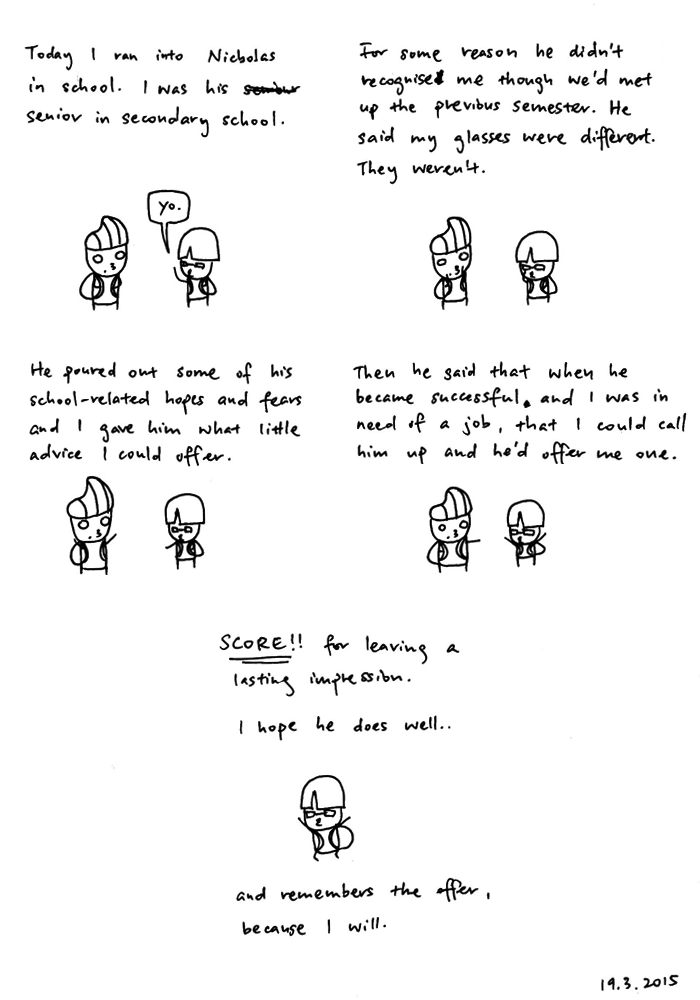 Today I ran into Nicholas
in school. I was his
senior in secondary school.
Yo.
For some reason he didn't
recognise me though we'd met
up the previous semester. He
said my glasses were different.
They weren't.
He poured out some of his
school-related hopes and fears
and I gave him what little
advice I could offer.
Then he said that when he
became successful, and I was in
need of a job, that I could call
him up and he'd offer me one.
SCORE!! for leaving a
lasting impression.
I hope he does well..
and remembers the offer,
because I will.
19.3.2015